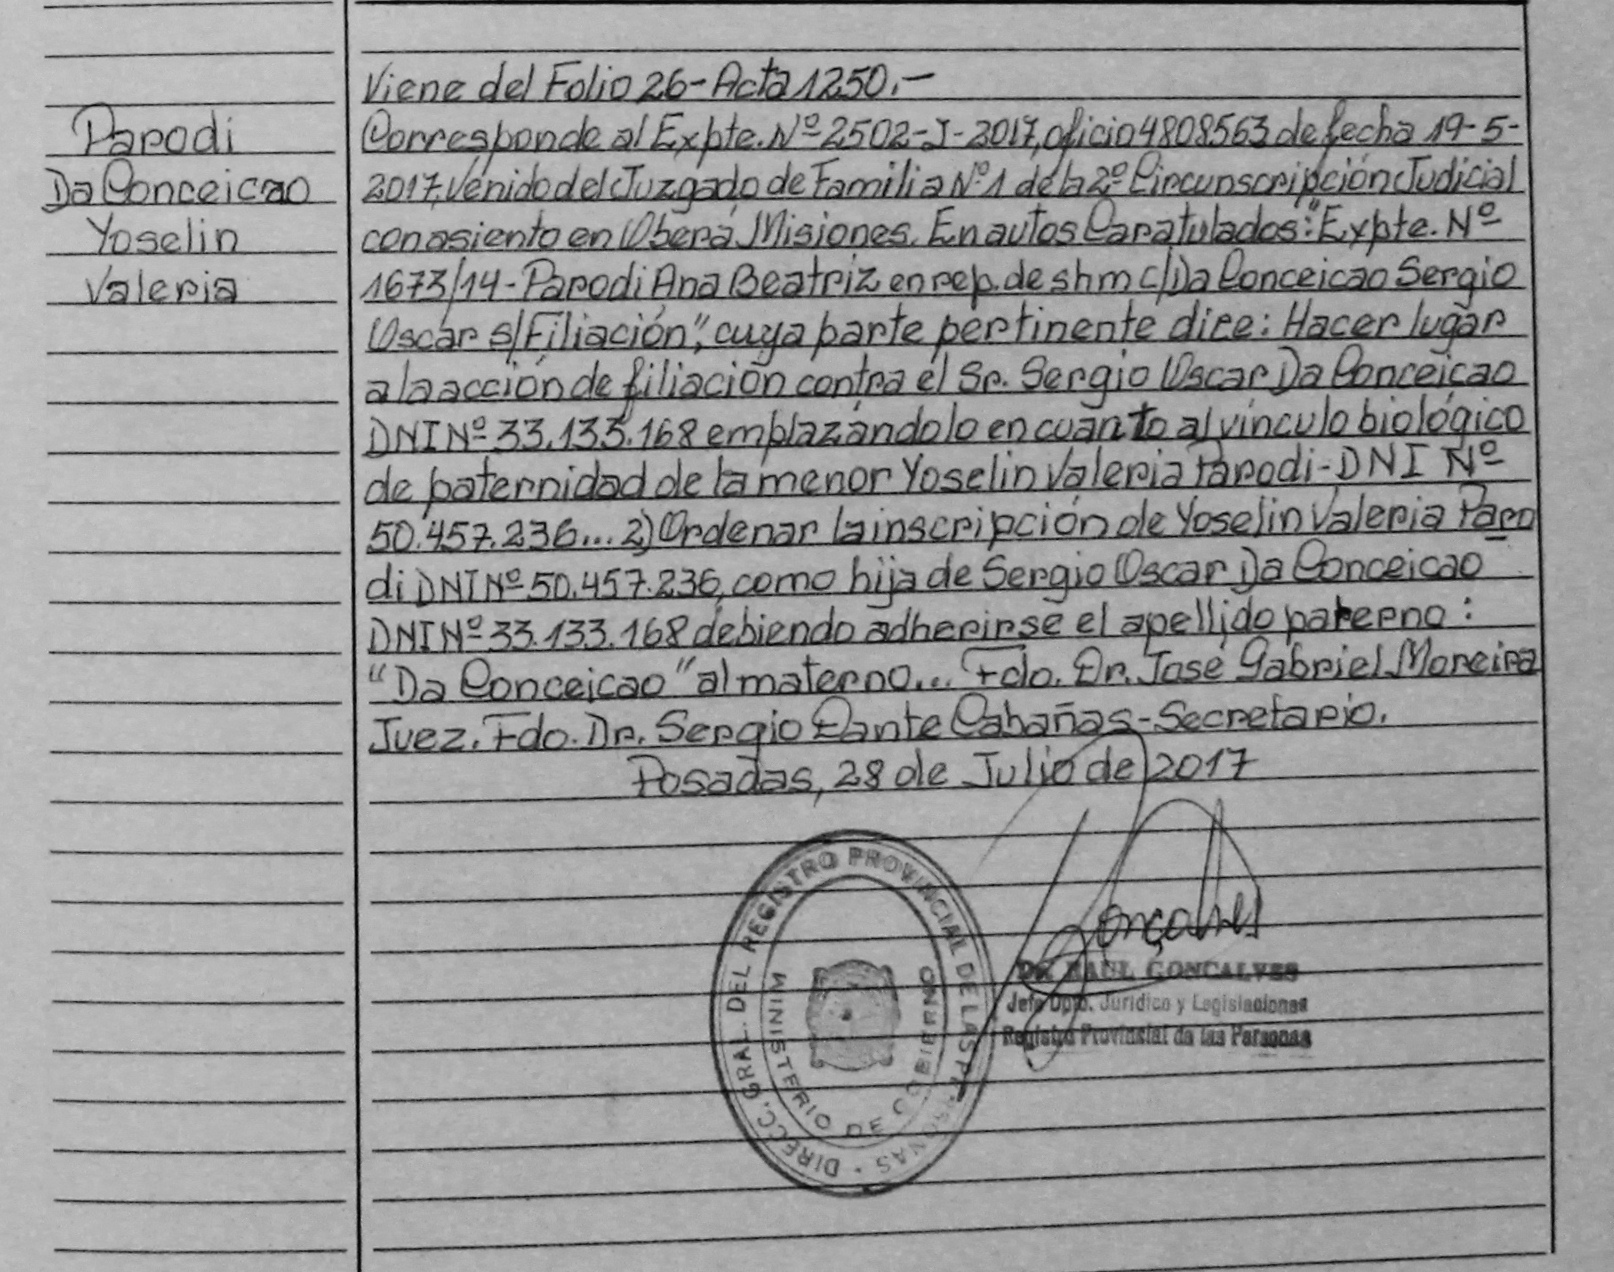 Parodi
Da Conceicao
Yoselin
Valeria
Viene del Folio 26-Acta 1250.-
Corresponde al Expte. Nº 2502-J-2017, oficio 4808563 de fecha 19-5-
2017, Venido del Juzgado de Familia Nº1 de la 2º Circunscripción Judicial
con asiento en Oberá Misiones. En autos Caratulados: "Expte. Nº
1673/14-Parodi Ana Beatriz en rep. de shm c/Da Conceicao Sergio
Oscar s/Filiación", cuya parte pertinente dice: Hacer lugar
a la acción de filiación contra el Sr. Sergio Oscar Da Conceicao
DNI Nº 33.133.168 emplazándolo en cuanto al vínculo biológico
de paternidad de la menor Yoselin Valeria Parodi-DNI Nº
50.457.236... 2) Ordenar la inscripción de Yoselin Valeria Paro
di DNI Nº 50.457.236, como hija de Sergio Oscar Da Conceicao
DNI Nº 33.133.168 debiendo adherirse el apellido paterno:
"Da Conceicao" al materno... Fdo. Dr. José Gabriel Moreira
Juez. Fdo. Dr. Sergio Dante Cabañas-Secretario.
Posadas, 28 de Julio de 2017
DIRECC. GRAL. DEL REGISTRO PROVINCIAL DE LAS PERSONAS
MINISTERIO DE GOBIERNO
Gonçalves
DR. RAUL GONCALVES
Jefe Dpto. Jurídico y Legislaciones
Registro Provincial de las Personas